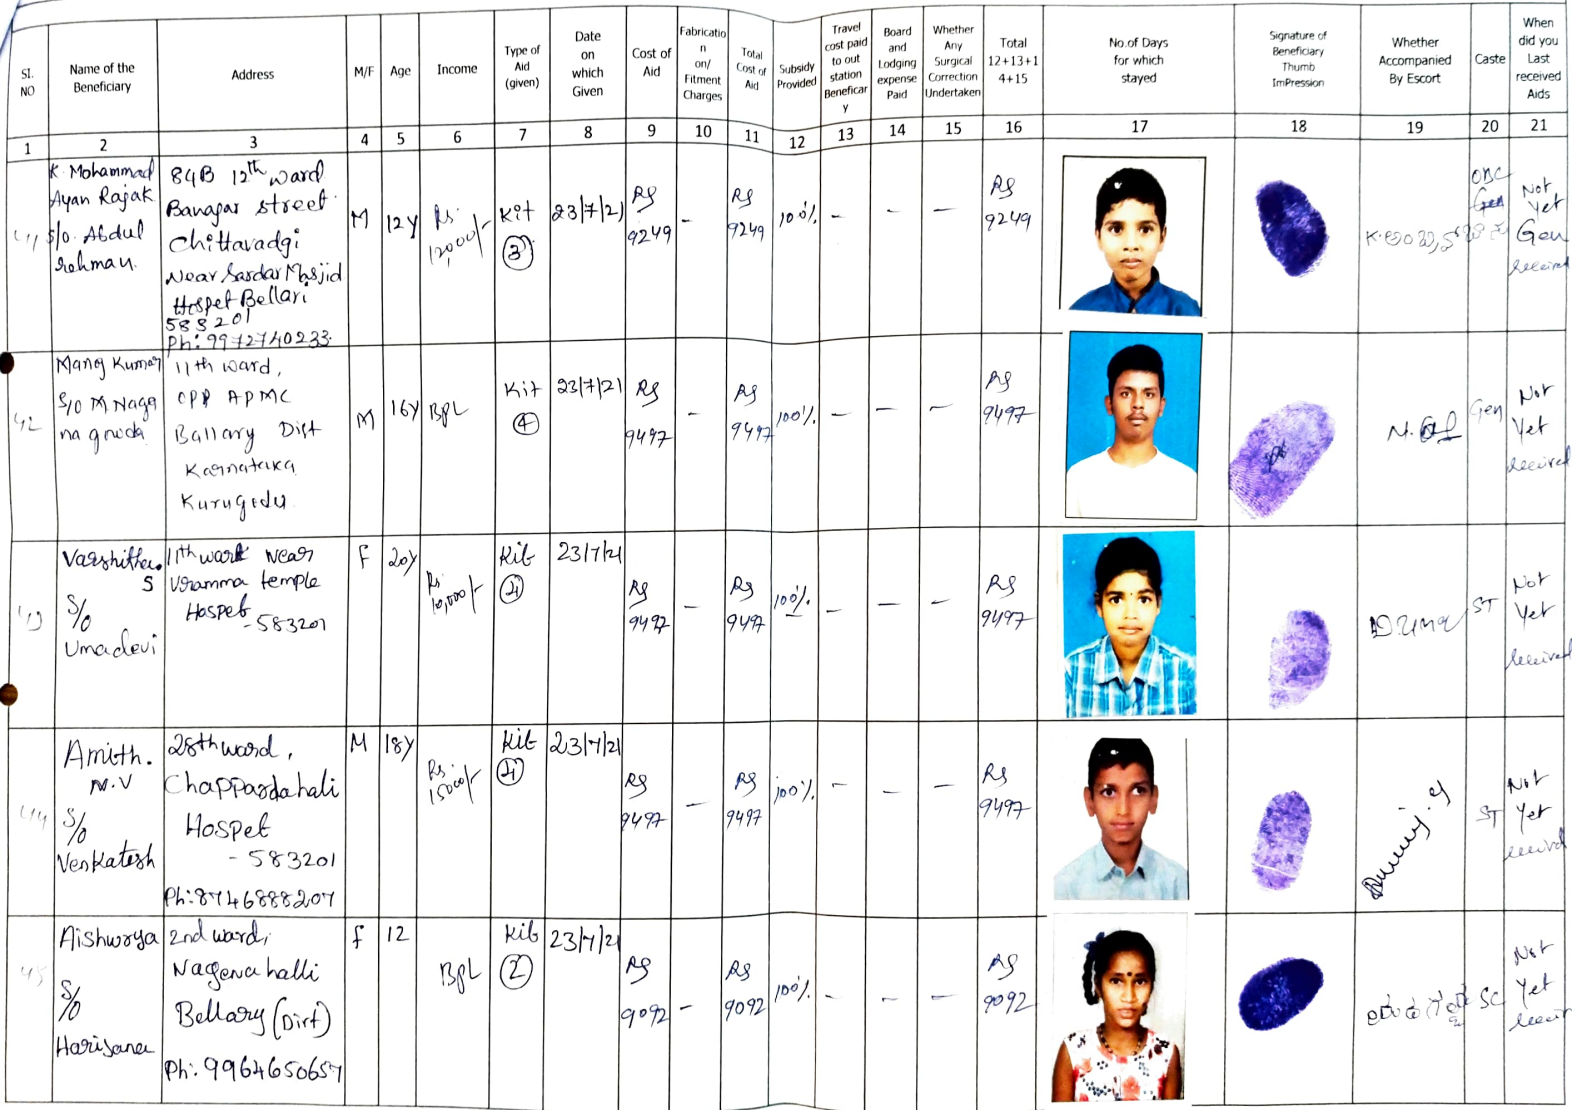 SI. NO
Name of the Beneficiary
Address
M/F
Age
Income
Type of Aid (given)
Date on which Given
Cost of Aid
Fabricatio n on/ Fitment Charges
Total Cost of Aid
Subsidy Provided
Travel cost paid to out station Beneficar y
Board and Lodging expense Paid
Whether Any Surgical Correction Undertaken
Total 12+13+1 4+15
No.of Days for which stayed
Signature of Beneficiary Thumb ImPression
Whether Accompanied By Escort
Caste
When did you Last received Aids
1 2 3 4 5 6 7 8 9 10 11 12 13 14 15 16 17 18 19 20 21
41
K. Mohammad
Ayan Rajak
S/o. Abdul
Rehman.
84B 12th ward
Banagar street
Chittavadgi
Near Sardar Masjid
Hospet Bellari
583201
Ph: 9972740233
M
12y
Rs. 12,000/-
Kit
3
23/7/21
Rs
9249
-
Rs
9249
100%
-
-
-
Rs
9249
OBC
Not
Yet
Gen
received
42
Manoj Kumar
S/o M Naga
na gouda
11th ward,
OPP APMC
Ballary Dist
Karnataka
Kurugodu
M
16y
BPL
Kit
4
23/7/21
Rs
9497
-
Rs
9497
100%
-
-
-
Rs
9497
Gen
Not
Yet
received
43
Varshitha.
S
S/o
Umadevi
11th wark Near
Vramma temple
Hospet
-583201
F
20y
Rs. 10,000/-
Kit
4
23/7/21
Rs
9497
-
Rs
9497
100%.
-
-
-
Rs
9497
D.Uma
ST
Not
Yet
received
44
Amith.
M.V
S/o
Venkatesh
28th ward,
Chappardahali
Hospet
- 583201
Ph: 8746888207
M
18y
Rs. 15000/-
Kit
4
23/7/21
Rs
9497
-
Rs
9497
100%.
-
-
-
Rs
9497
ST
Not
Yet
received
45
Aishwarya
S/o
Harijana
2nd ward,
Nagenahalli
Bellary (Dist)
Ph: 9964650657
F
12
BPL
Kit
2
23/7/21
Rs
9092
-
Rs
9092
100%.
-
-
-
Rs
9092
SC
Not
Yet